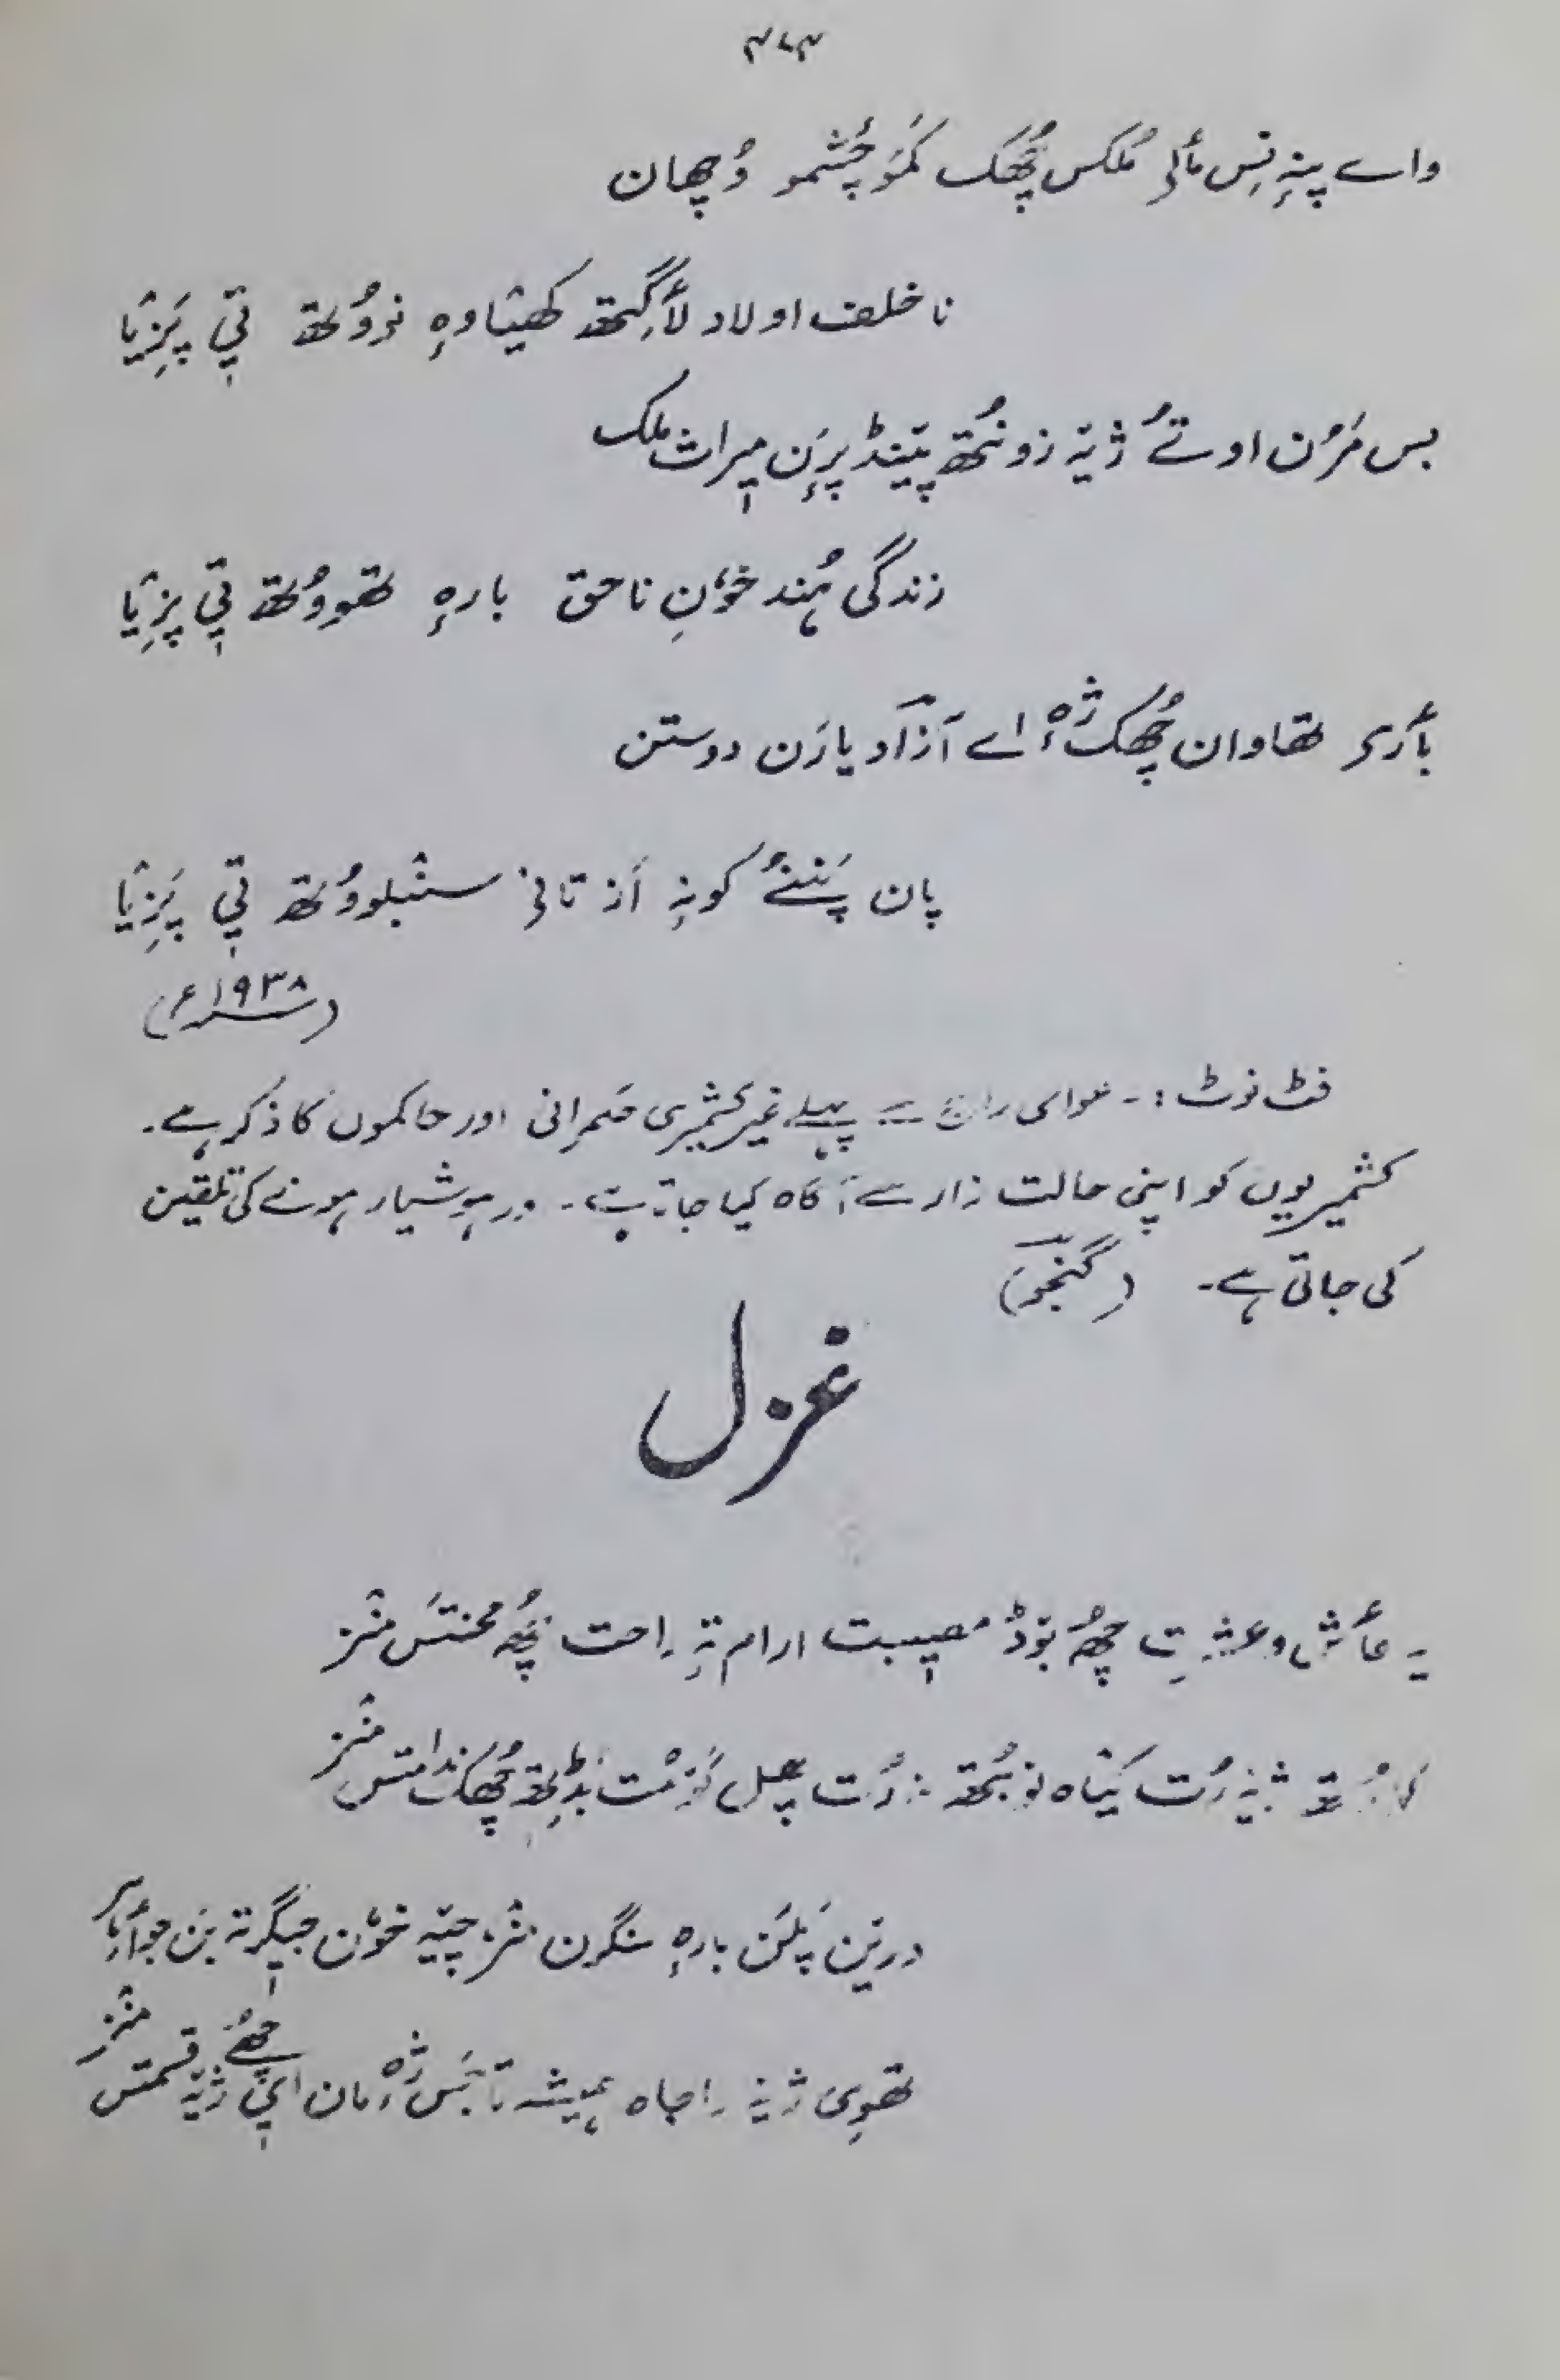 ۳۶۳
واے پنہٕ نِس مألۍ مُلکس چھُکھ کَمَو چَشمو وُچھان
ناخلف اولاد لأگِتھ کھیٚاوہِ نووُتھ تی پَزِیٚا
بس مَرُن اوتےُ ژیہٕ زونُتھ پیٚنڈ پرٕن میراث ملک
زندگی ہُند خوٗنِ ناحق بارہِ تھووُتھ تی پزِیٚا
بأرۍ تھاوان چھُکھ ژٕہ اے آزاد یارَن دوستن
پان پَننےُ کونہٕ اَز تانۍ سنٚبلووُتھ تی پَزِیٚا
(۱۹۳۸ء)
فٹ نوٹ :- عوامی راج سے پہلے غیر کشمیری حکمرانی اور حاکموں کا ذکر ہے۔
کشمیریوں کو اپنی حالت زار سے آگاہ کیا جاتا ہے۔ اور ہوشیار ہونے کی تلقین
کی جاتی ہے۔ (گنجو)
غزل
یہ عأش و عشرت چھُ بوٚڈ مصیبت ارام تہٕ راحت چھُ محنتَس منٛز
ژیہٕ رُت کیٚاہ رُت پھل چھُکھ ندامتس منٛز
درین پَلَن بارہِ سنگرن منٛز چیتہٕ خوٗن جیگرتہ بن جواہر
تھوِی ژیہٕ راجاہ ہمیشہ تابَس ژٕہ مان اتی چھےُ ژیہٕ قسمتس منٛز